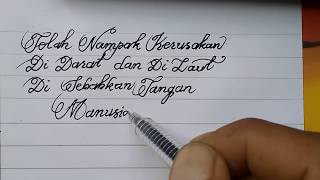 Telah Nampak Kerusakan
Di Darat dan Di Laut
Di Sebabkan Tangan
Manusia